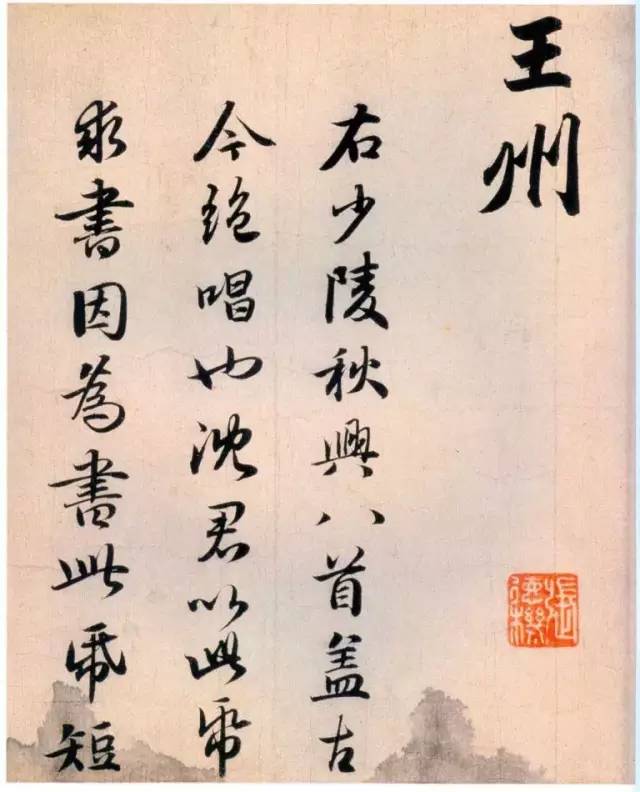 王州
右少陵秋興八首蓋古
今絶唱也沈君以此帋
求書因為書此帋短